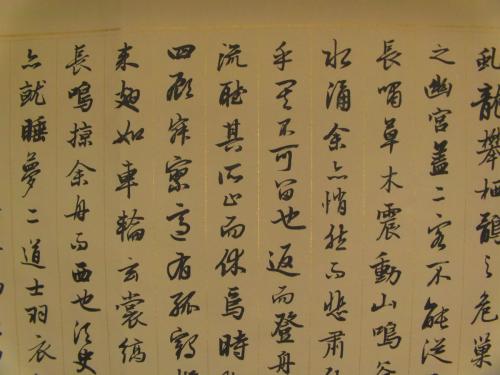 虬龍攀栖鶻之危巢
之幽宮蓋二客不能從
長嘯草木震動山鳴谷
水涌余亦悄然而悲肅
乎其不可留也返而登舟
流聽其所止而休焉時
四顧寂寥適有孤鶴
来翅如車輪玄裳縞
長鳴掠余舟而西也須臾
亦就睡夢二道士羽衣